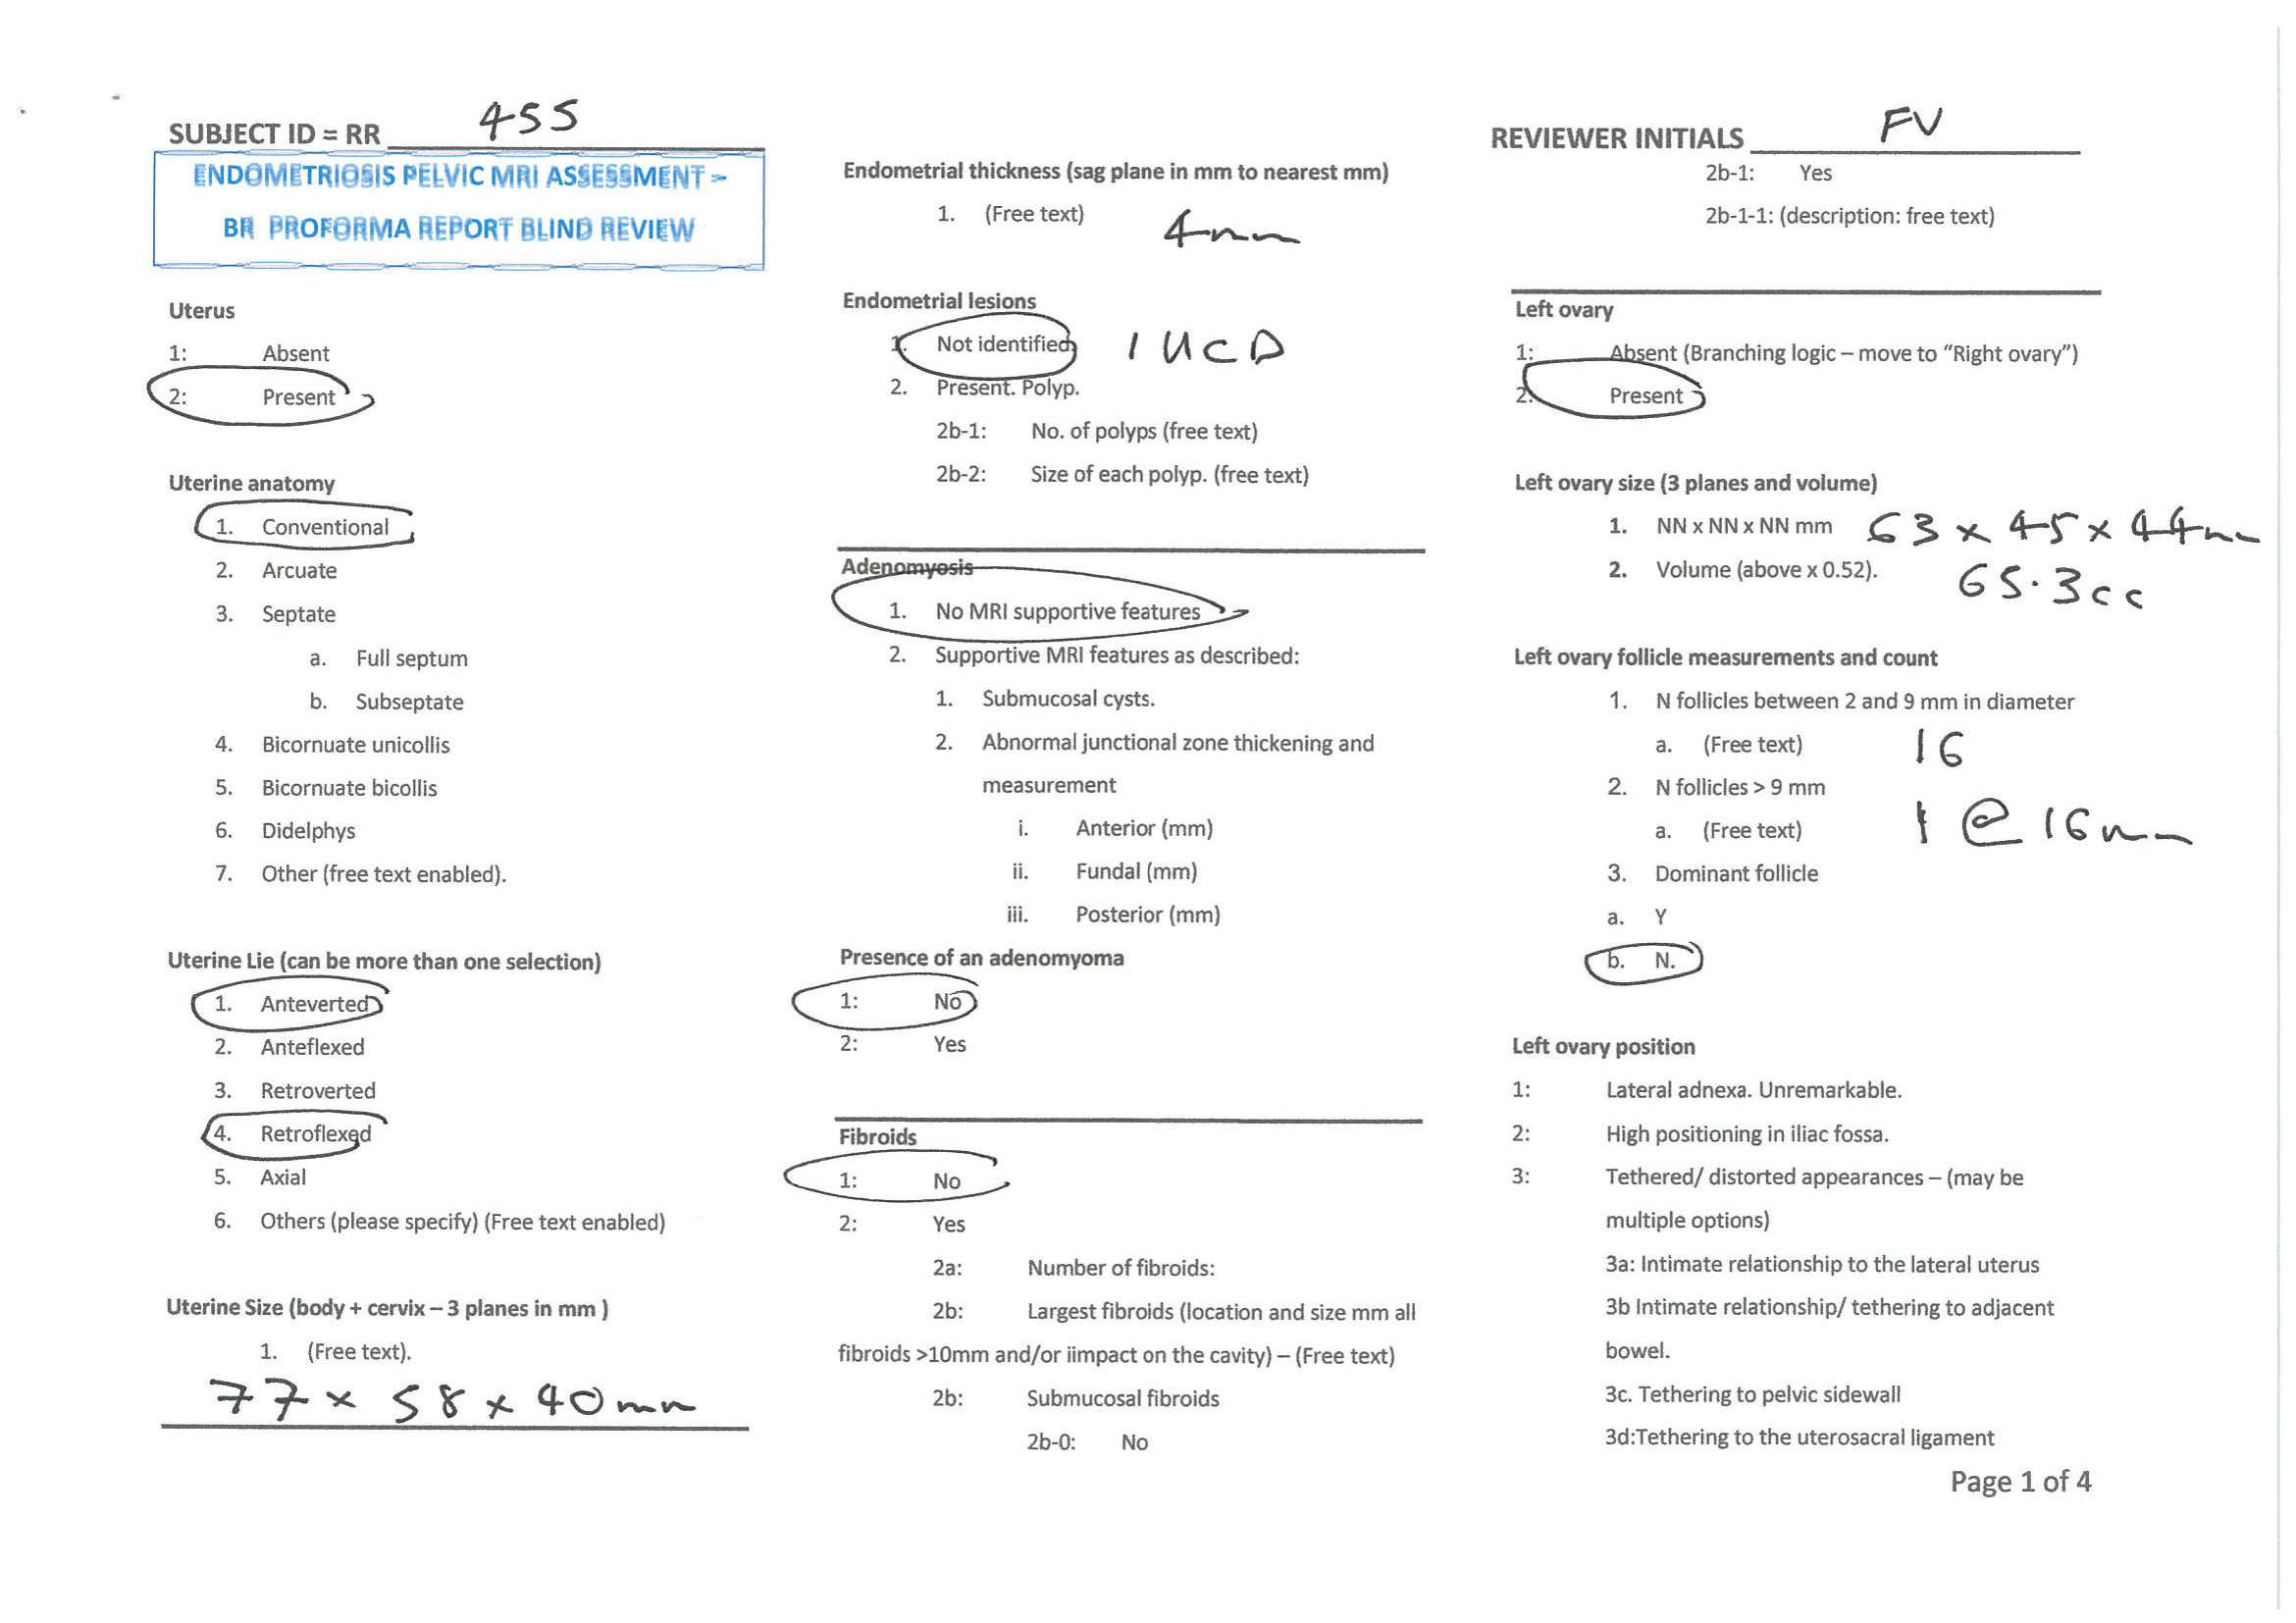 SUBJECT ID = RR 455
ENDOMETRIOSIS PELVIC MRI ASSESSMENT –
BR PROFORMA REPORT BLIND REVIEW
Uterus
1: Absent
2: Present
Uterine anatomy
1. Conventional
2. Arcuate
3. Septate
a. Full septum
b. Subseptate
4. Bicornuate unicollis
5. Bicornuate bicollis
6. Didelphys
7. Other (free text enabled).
Uterine Lie (can be more than one selection)
1. Anteverted
2. Anteflexed
3. Retroverted
4. Retroflexed
5. Axial
6. Others (please specify) (Free text enabled)
Uterine Size (body + cervix – 3 planes in mm )
1. (Free text).
77 x 58 x 40mm
Endometrial thickness (sag plane in mm to nearest mm)
1. (Free text) 4mm
Endometrial lesions
1. Not identified IUCD
2. Present. Polyp.
2b-1: No. of polyps (free text)
2b-2: Size of each polyp. (free text)
Adenomyosis
1. No MRI supportive features
2. Supportive MRI features as described:
1. Submucosal cysts.
2. Abnormal junctional zone thickening and
measurement
i. Anterior (mm)
ii. Fundal (mm)
iii. Posterior (mm)
Presence of an adenomyoma
1: No
2: Yes
Fibroids
1: No
2: Yes
2a: Number of fibroids:
2b: Largest fibroids (location and size mm all
fibroids >10mm and/or iimpact on the cavity) – (Free text)
2b: Submucosal fibroids
2b-0: No
REVIEWER INITIALS FV
2b-1: Yes
2b-1-1: (description: free text)
Left ovary
1: Absent (Branching logic – move to "Right ovary")
2: Present
Left ovary size (3 planes and volume)
1. NN x NN x NN mm 63 x 45 x 44mm
2. Volume (above x 0.52). 65.3cc
Left ovary follicle measurements and count
1. N follicles between 2 and 9 mm in diameter
a. (Free text) 16
2. N follicles > 9 mm
a. (Free text) 1 @ 16mm
3. Dominant follicle
a. Y
b. N.
Left ovary position
1: Lateral adnexa. Unremarkable.
2: High positioning in iliac fossa.
3: Tethered/ distorted appearances – (may be
multiple options)
3a: Intimate relationship to the lateral uterus
3b Intimate relationship/ tethering to adjacent
bowel.
3c. Tethering to pelvic sidewall
3d:Tethering to the uterosacral ligament
Page 1 of 4